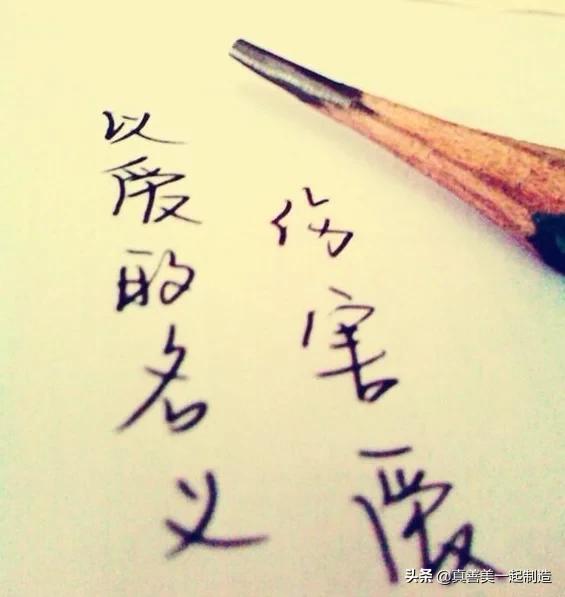 以爱的名义
伤害爱
头条 @真善美一起制造